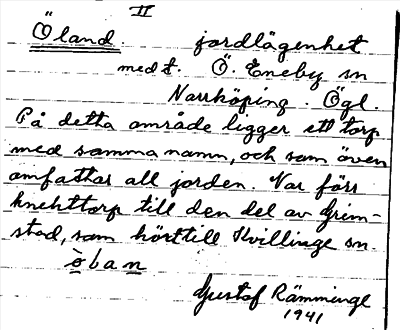 II
Öland jordlägenhet
med t. Ö. Eneby sn
Norrköping. Ögl.
På detta område ligger ett torp
med samma namn, och som även
omfattar all jorden. Var förr
knekttorp till den del av Grim-
stad, som hört till Kvillinge sn.
òban
Gustaf Rämminge
1941